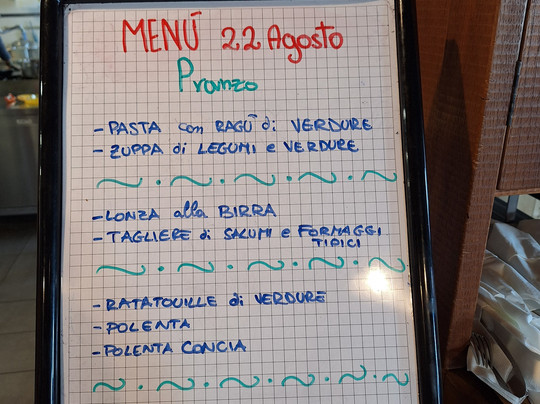 MENÚ 22 Agosto
Pranzo
- PASTA con RAGÚ di VERDURE
- ZUPPA di LEGUMI e VERDURE
- LONZA alla BIRRA
- TAGLIERE di SALUMI e FORMAGGI
TIPICI
- RATATOUILLE di VERDURE
- POLENTA
- POLENTA CONCIA